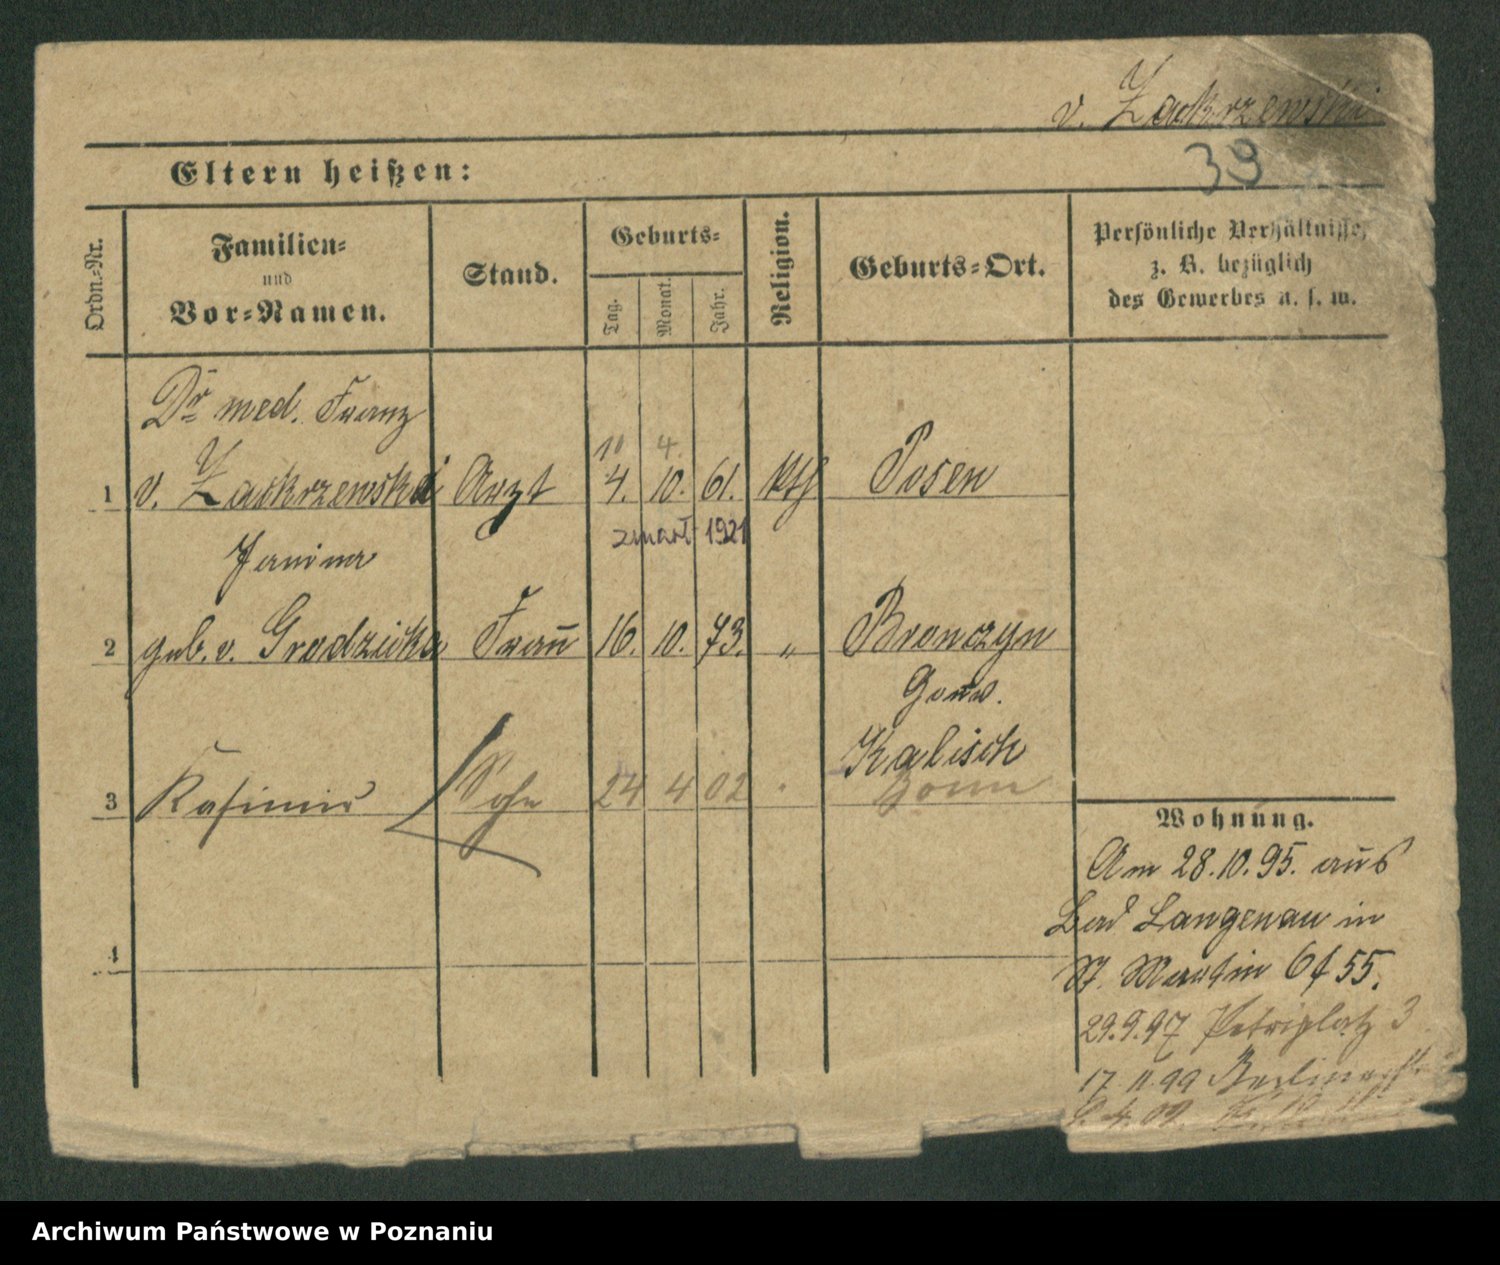 v. Zackrzewski
39
Eltern heißen:
Ordn.-Nr.
Familien-
und
Vor-Namen.
Stand.
Geburts-
Tag.
Monat.
Jahr.
Religion.
Geburts-Ort.
Persönliche Verhältnisse,
z. B. bezüglich
des Gewerbes u. s. w.
Dr med. Franz
10 4.
1 v. Zackrzewski Arzt 4. 10. 61. kth Posen
zmarł 1921
Janina
2 geb. v. Grodzicka Frau 16. 10. 73. „ Bronczyn
Gouv.
Kalisch
3 Kasimir Sohn 24 4 02 Posen
4
Wohnung.
Am 28.10.95. aus
Bad Langenau in
St. Martin 64 55.
29.9.97 Petriplatz 3
17.11.99 Berlinerstr
Archiwum Państwowe w Poznaniu